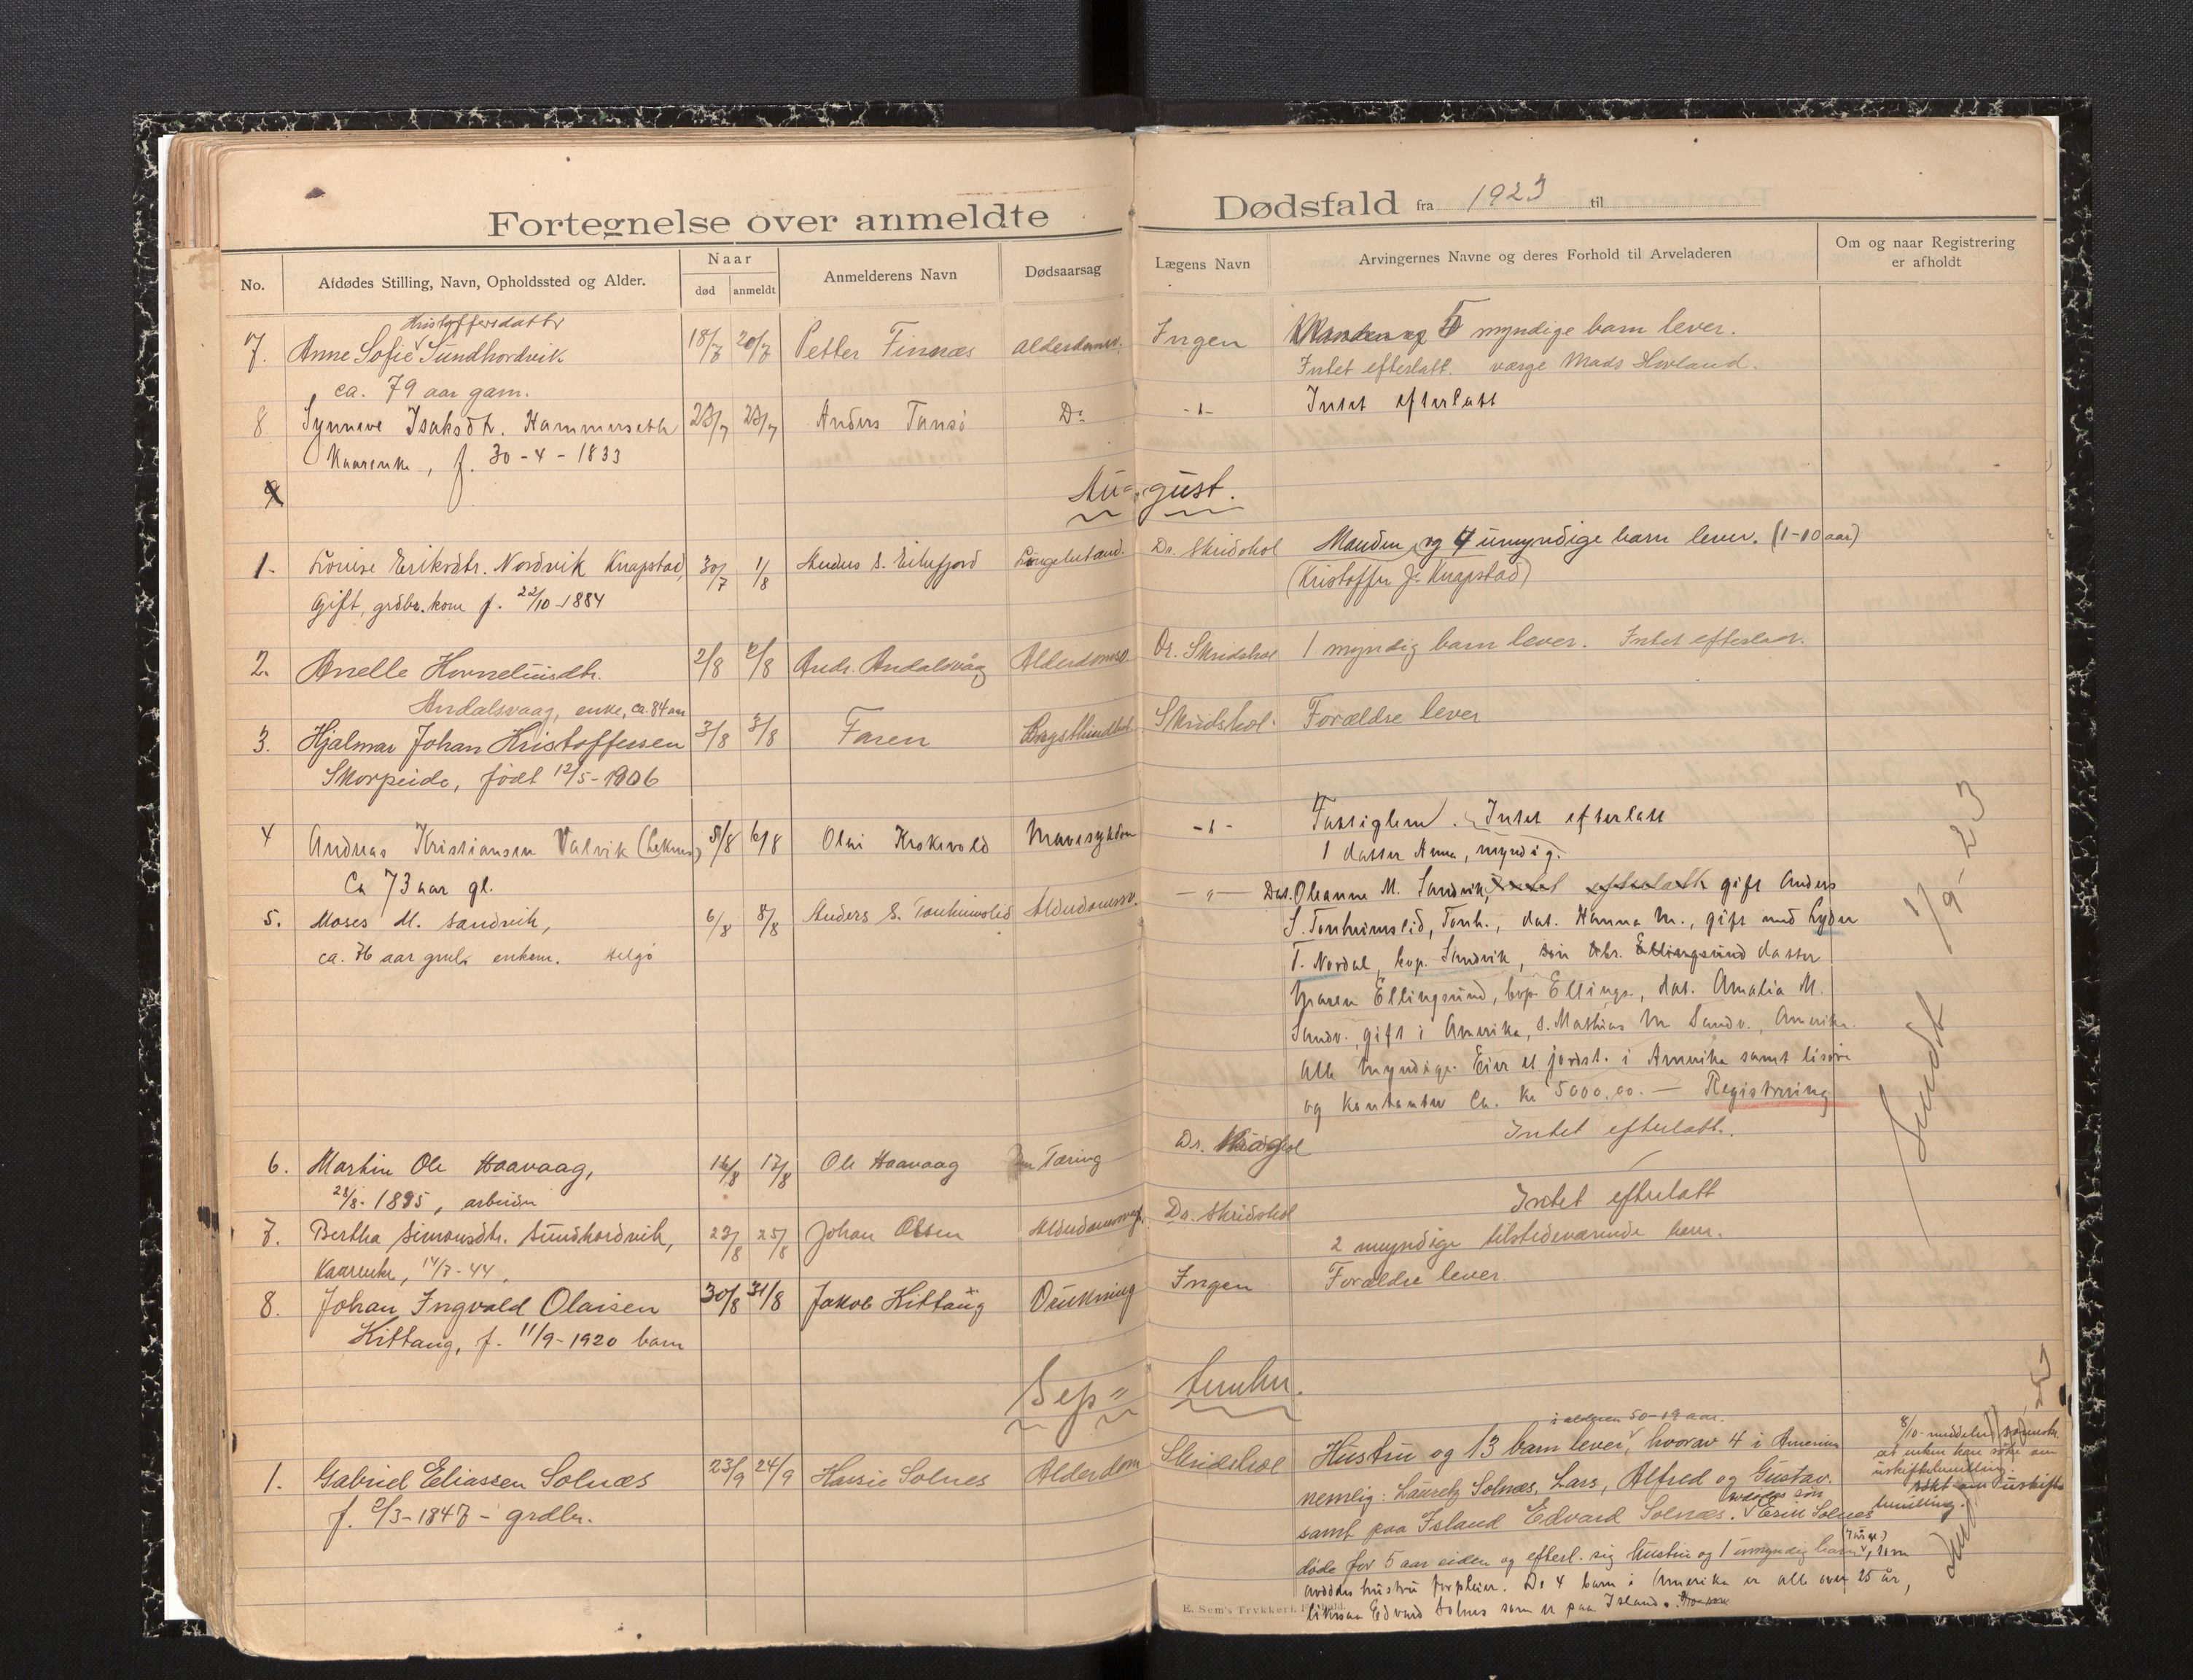 Fortegnelse over anmeldte Dødsfald fra 1923 til
No. Afdødes Stilling, Navn, Opholdssted og Alder. Naar død anmeldt Anmelderens Navn Dødsaarsag Lægens Navn Arvingernes Navne og deres Forhold til Arveladeren Om og naar Registrering er afholdt
Kristoffersdattr
7. Anne Sofie Sundhordvik 18/7 20/7 Petter Finnæs Alderdomsv. Ingen 5 myndige barn lever.
ca. 79 aar gam. Intet efterlatt. værge Mads Hovland.
8 Synneve Isaksdtr. Hammerseth 23/7 23/7 Anders Tansö Do -"- Intet efterlatt
Kaarenke, f. 30-4-1833
August.
1. Lovise Eriksdtr. Nordvik Knapstad, 30/7 1/8 Anders S. Eikefjord Dr. Skridshol Manden og 4 umyndige barn lever. (1-10 aar)
Gift, grdbr. kone f. 22/10-1884 (Kristoffer J. Knapstad)
2. Anelle Korneliusdtr. 2/8 2/8 Andr. Andalsvåg Alderdomsv. Dr. Skridshol 1 myndig barn lever. Intet efterlatt.
Andalsvaag, enke, ca. 84 aar
3. Hjalmar Johan Kristoffersen 3/8 3/8 Faren Skridshol. Forældre lever
Skorpeide, født 12/5-1906
4 Andreas Kristiansen Valvik (Leknes) 5/8 6/8 Olai Mavesykdom -"- Fattiglem. Intet efterlatt
Ca 73 aar gl. 1 datter Anna, myndig.
5. Moses M. Sandvik, 6/8 8/8 Anders S. Tonheimslid Alderdomssv. -"- Dat. Oleanne M. Sandvik, intet efterlatt gift Anders
ca. 76 aar enkem. S. Tonheimslid, Tonh., dat. Hanna M., gift med Lyder
T. Nordal, bop. Sandvik, datter
Maren Ellingsund, bop. Ellings., dat. Amalia M.
Sandv., gift i Amerika, s. Mathias M Sandv., Amerika.
Alle myndige. Eier et jordst. i Amerika samt lisøre
og kontanter ca. kr 5000,00. — Registrering
Sendt 1/9-23
6. Martin Ole Haavaag, 16/8 17/8 Ole Haavaag Tæring Dr. Skridshol Intet efterlatt.
28/8-1895, arbeider
7. Bertha Simonsdtr. Sundhordvik, 23/8 25/8 Johan Olsen Dr. Skridshol Intet efterlatt
Kaarenke, 14/7-44, 2 myndige tilstedeværende barn.
8. Johan Ingvald Olaisen 30/8 31/8 Jakob Kittang Drukning Ingen Forældre lever
Kittang, f. 11/9-1920 barn
September.
i alderen 50-19 aar.
1. Gabriel Eliassen Solnæs 23/9 24/9 Solnes Alderdom Skridshol Hustru og 13 barn lever, hvorav 4 i Amerika
f. 2/3-1847 - grdbr. nemlig: Lauretz Solnæs, Lars, Alfred og Gustav.
samt paa Island Edvard Solnæs.
døde for 5 aar siden og efterl. sig hustru og 1 umyndig barn, som
avdødes hustru forpleier. De 4 barn i Amerika er alle over 25 år,
likesaa Edvard Solnes som er paa Island.
E. Sem's Trykkeri, Fr.hald.